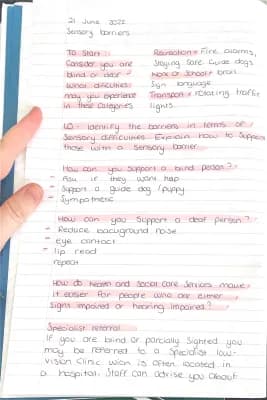 21 June 2022
Sensory barriers
To Start:
Consider you are
blind or deaf -
What difficulties
may you experience
in these categories
Recreation = Fire alarms,
Staying safe Guide dogs
Work or School = brail
Sign language
Transport = rotating traffic
lights.
LO - Identify the barriers in terms of
Sensory difficulties. Explain how to support
those with a sensory barrier.
How can you support a blind person?
- Ask if they want help
- Support a guide dog / puppy
- Sympathetic
How can you support a deaf person?
- Reduce background noise
- eye contact
- lip read
repeat
How do Health and Social Care Services make
it easier for people who are either
Signs impaired or hearing impaired?
Specialist referral
If you are blind or partially sighted you
may be referred to a Specialist low-
vision clinic wich is often located in
a hospital. Staff can advise you about